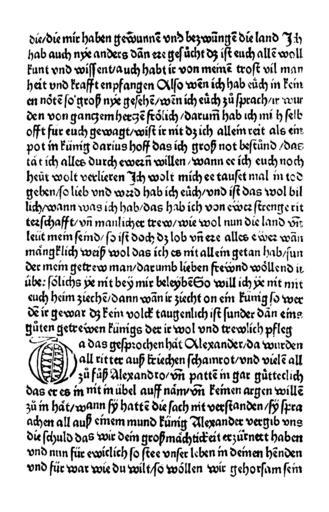 die/die mir haben gewunnen vnd bezwungen die land Ich
hab auch nye anders dañ ere gesůcht dz ist euch allen woll
kunt vnd wissent/auch habt ir von meinem trost vil man
heit vnd krafft enpfangen Also wen ich hab euch in kein
en nöten so groß nye gesehen/wen ich eüch zů sprach/ir wur
den von ganczem herczen frölich/darumb hab ich mi h selb
offt fur euch gewagt/wist ir nit dz ich allein reit als ein
pot in künig darius hoff das ich groß not bestůnd/das
tat ich alles durch ewern willen/wann ee ich euch noch
heüt wolt verlieren Ich wolt mich ee tauset mal in tod
geben/so lieb vnd werd hab ich eüch/vnd ist das wol bil
lich/wann was ich hab/das hab ich von ewer strenge rit
terschafft/vñ manlicher trew/wie wol nun die land vñ
leüt mein seind/so ist doch dz lob vñ ere alles ewer wañ
mängklich weiß wol das ich es nit allein getan hab/sun
der mein getrew man/darumb lieben freünd wöllend ir
übe: sölichs ye nit bey mir beleyben So will ich ye nit mit
euch heim ziechen/dann wañ ir ziecht on ein künig so wer
de ir gewar dz kein volck taugenlich ist sunder dan eins
gůten getrewen künigs der ir wol vnd trewlich pfleg
Da das gesprochen hät Alexander/da wurden
all ritter auß kriechen schamrot/vnd vielen all
zů fůß Alexandro/vñ patten in gar gütteclich
das er es in nit in übel auff näm/vñ keinen argen willen
zů in hät/wann sy hatten die sach nit verstanden/sy spra
achen all auß einem mund künig Alexander vergib vns
die schuld das wir dein großmächtikeit erzürnett haben
vnd nun für ewiclich so stee vnser leben in deinen henden
vnd für war wie du wilt/so wöllen wir gehorsam sein